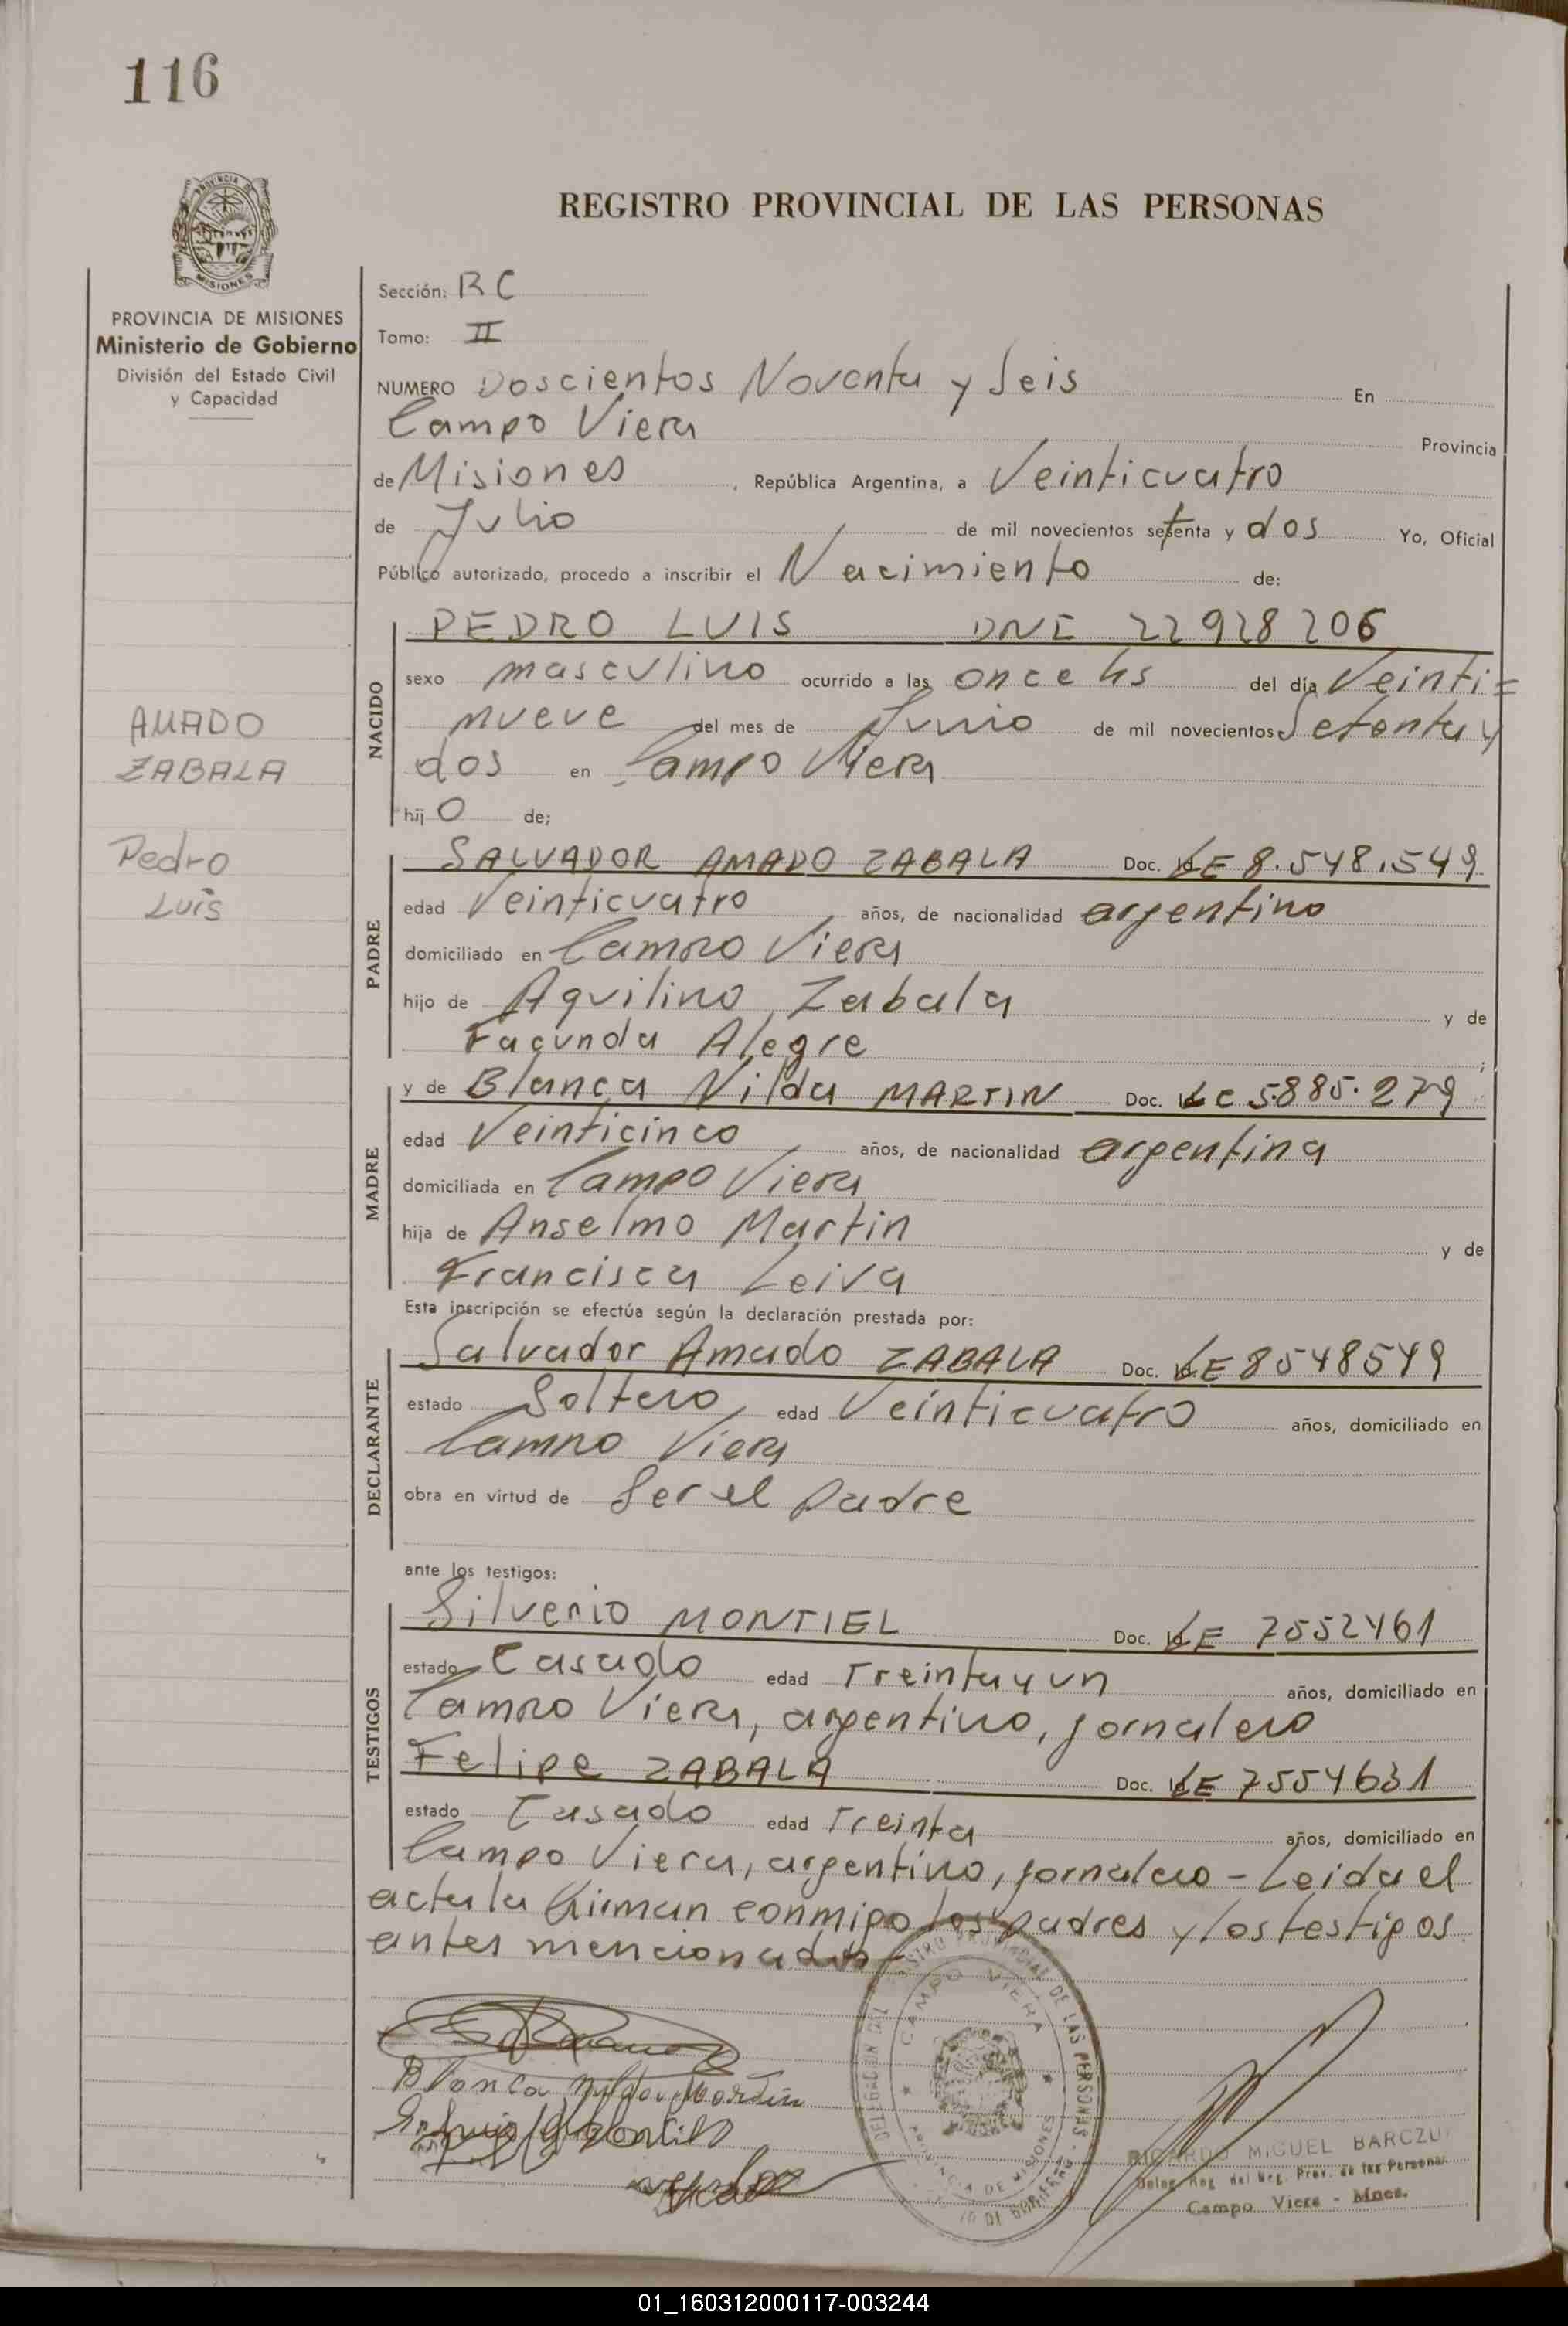 116
PROVINCIA DE
MISIONES
REGISTRO PROVINCIAL DE LAS PERSONAS
PROVINCIA DE MISIONES
Ministerio de Gobierno
División del Estado Civil
y Capacidad
AMADO
ZABALA
Pedro
Luis
Sección: RC
Tomo: II
NUMERO Doscientos Noventa y Seis En
Campo Viera Provincia
de Misiones, República Argentina, a Veinticuatro
de Julio de mil novecientos setenta y dos Yo, Oficial
Público autorizado, procedo a inscribir el Nacimiento de:
NACIDO
PEDRO LUIS DNI 22928206
sexo masculino ocurrido a las once hs del día Veinti=
nueve del mes de Junio de mil novecientos Setenta y
dos en Campo Viera
hij o de;
PADRE
SALVADOR AMADO ZABALA Doc. LE 8.548.549
edad Veinticuatro años, de nacionalidad argentino
domiciliado en Campo Viera
hijo de Aquilino Zabala y de
Facunda Alegre ;
MADRE
y de Blanca Nilda MARTIN Doc. LC 5.885.279
edad Veinticinco años, de nacionalidad argentina
domiciliada en Campo Viera
hija de Anselmo Martin y de
Francisca Leiva
Esta inscripción se efectúa según la declaración prestada por:
DECLARANTE
Salvador Amado ZABALA Doc. LE 8548549
estado Soltero, edad Veinticuatro años, domiciliado en
Campo Viera
obra en virtud de Ser el padre
ante los testigos:
TESTIGOS
Silverio MONTIEL Doc. LE 7552461
estado Casado edad Treinta y un años, domiciliado en
Campo Viera, argentino, jornalero
Felipe ZABALA Doc. LE 7554631
estado Casado edad Treinta años, domiciliado en
Campo Viera, argentino, jornalero - Leida el
acta la firman conmigo los padres y los testigos
antes mencionados
Blanca Nilda Martin
REGISTRO PROVINCIAL DE LAS PERSONAS
CAMPO VIERA
PROVINCIA DE MISIONES
RICARDO MIGUEL BARCZUK
Deleg. Reg. del Reg. Prov. de las Personas
Campo Viera - Mnes.
01_160312000117-003244